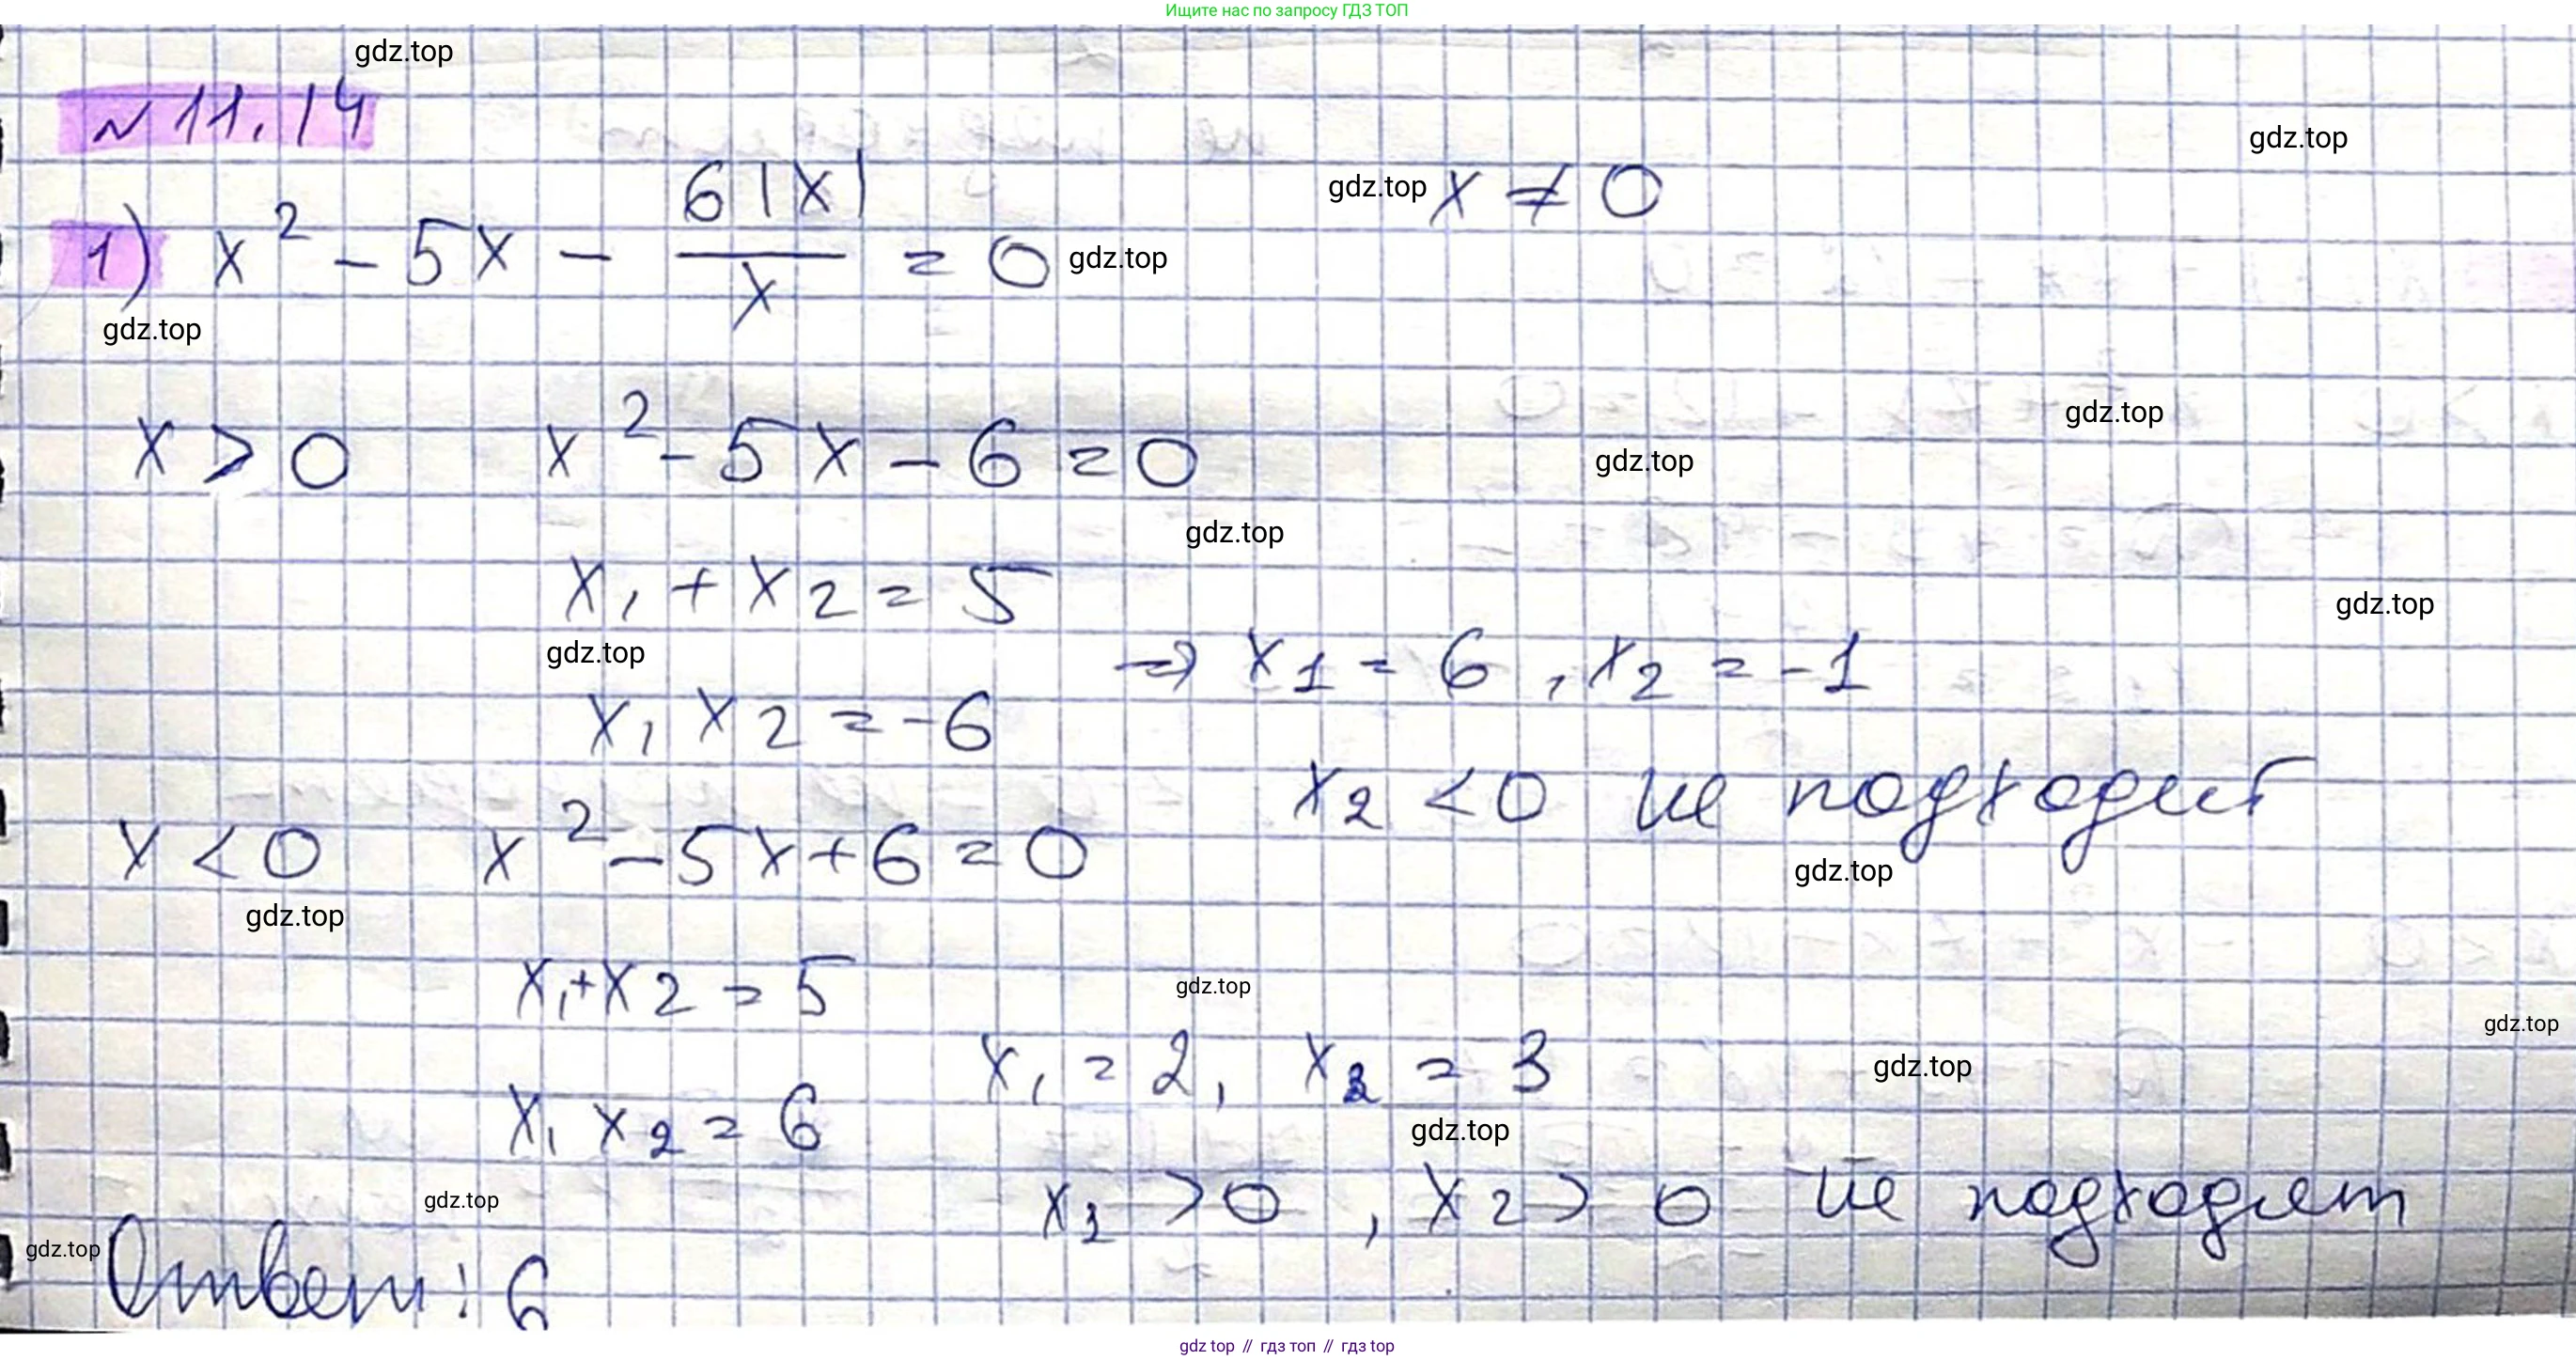 Ищите нас по запросу ГДЗ ТОП
gdz.top
№ 11.14
gdz.top
1) x² - 5x - 6|x|/x = 0 gdz.top
gdz.top x ≠ 0
gdz.top
x > 0 x² - 5x - 6 = 0
gdz.top
gdz.top
gdz.top
x₁ + x₂ = 5
gdz.top
gdz.top
⇒ x₁ = 6 , x₂ = -1
x₁ x₂ = -6
x₂ < 0 не подходит
x < 0 x² - 5x + 6 = 0
gdz.top
gdz.top
x₁ + x₂ = 5
gdz.top
gdz.top
x₁ = 2, x₂ = 3
gdz.top
x₁ x₂ = 6
gdz.top
x₁ > 0 , x₂ > 0 не подходит
gdz.top
gdz.top
Ответ: 6
gdz top // гдз топ // гдз top